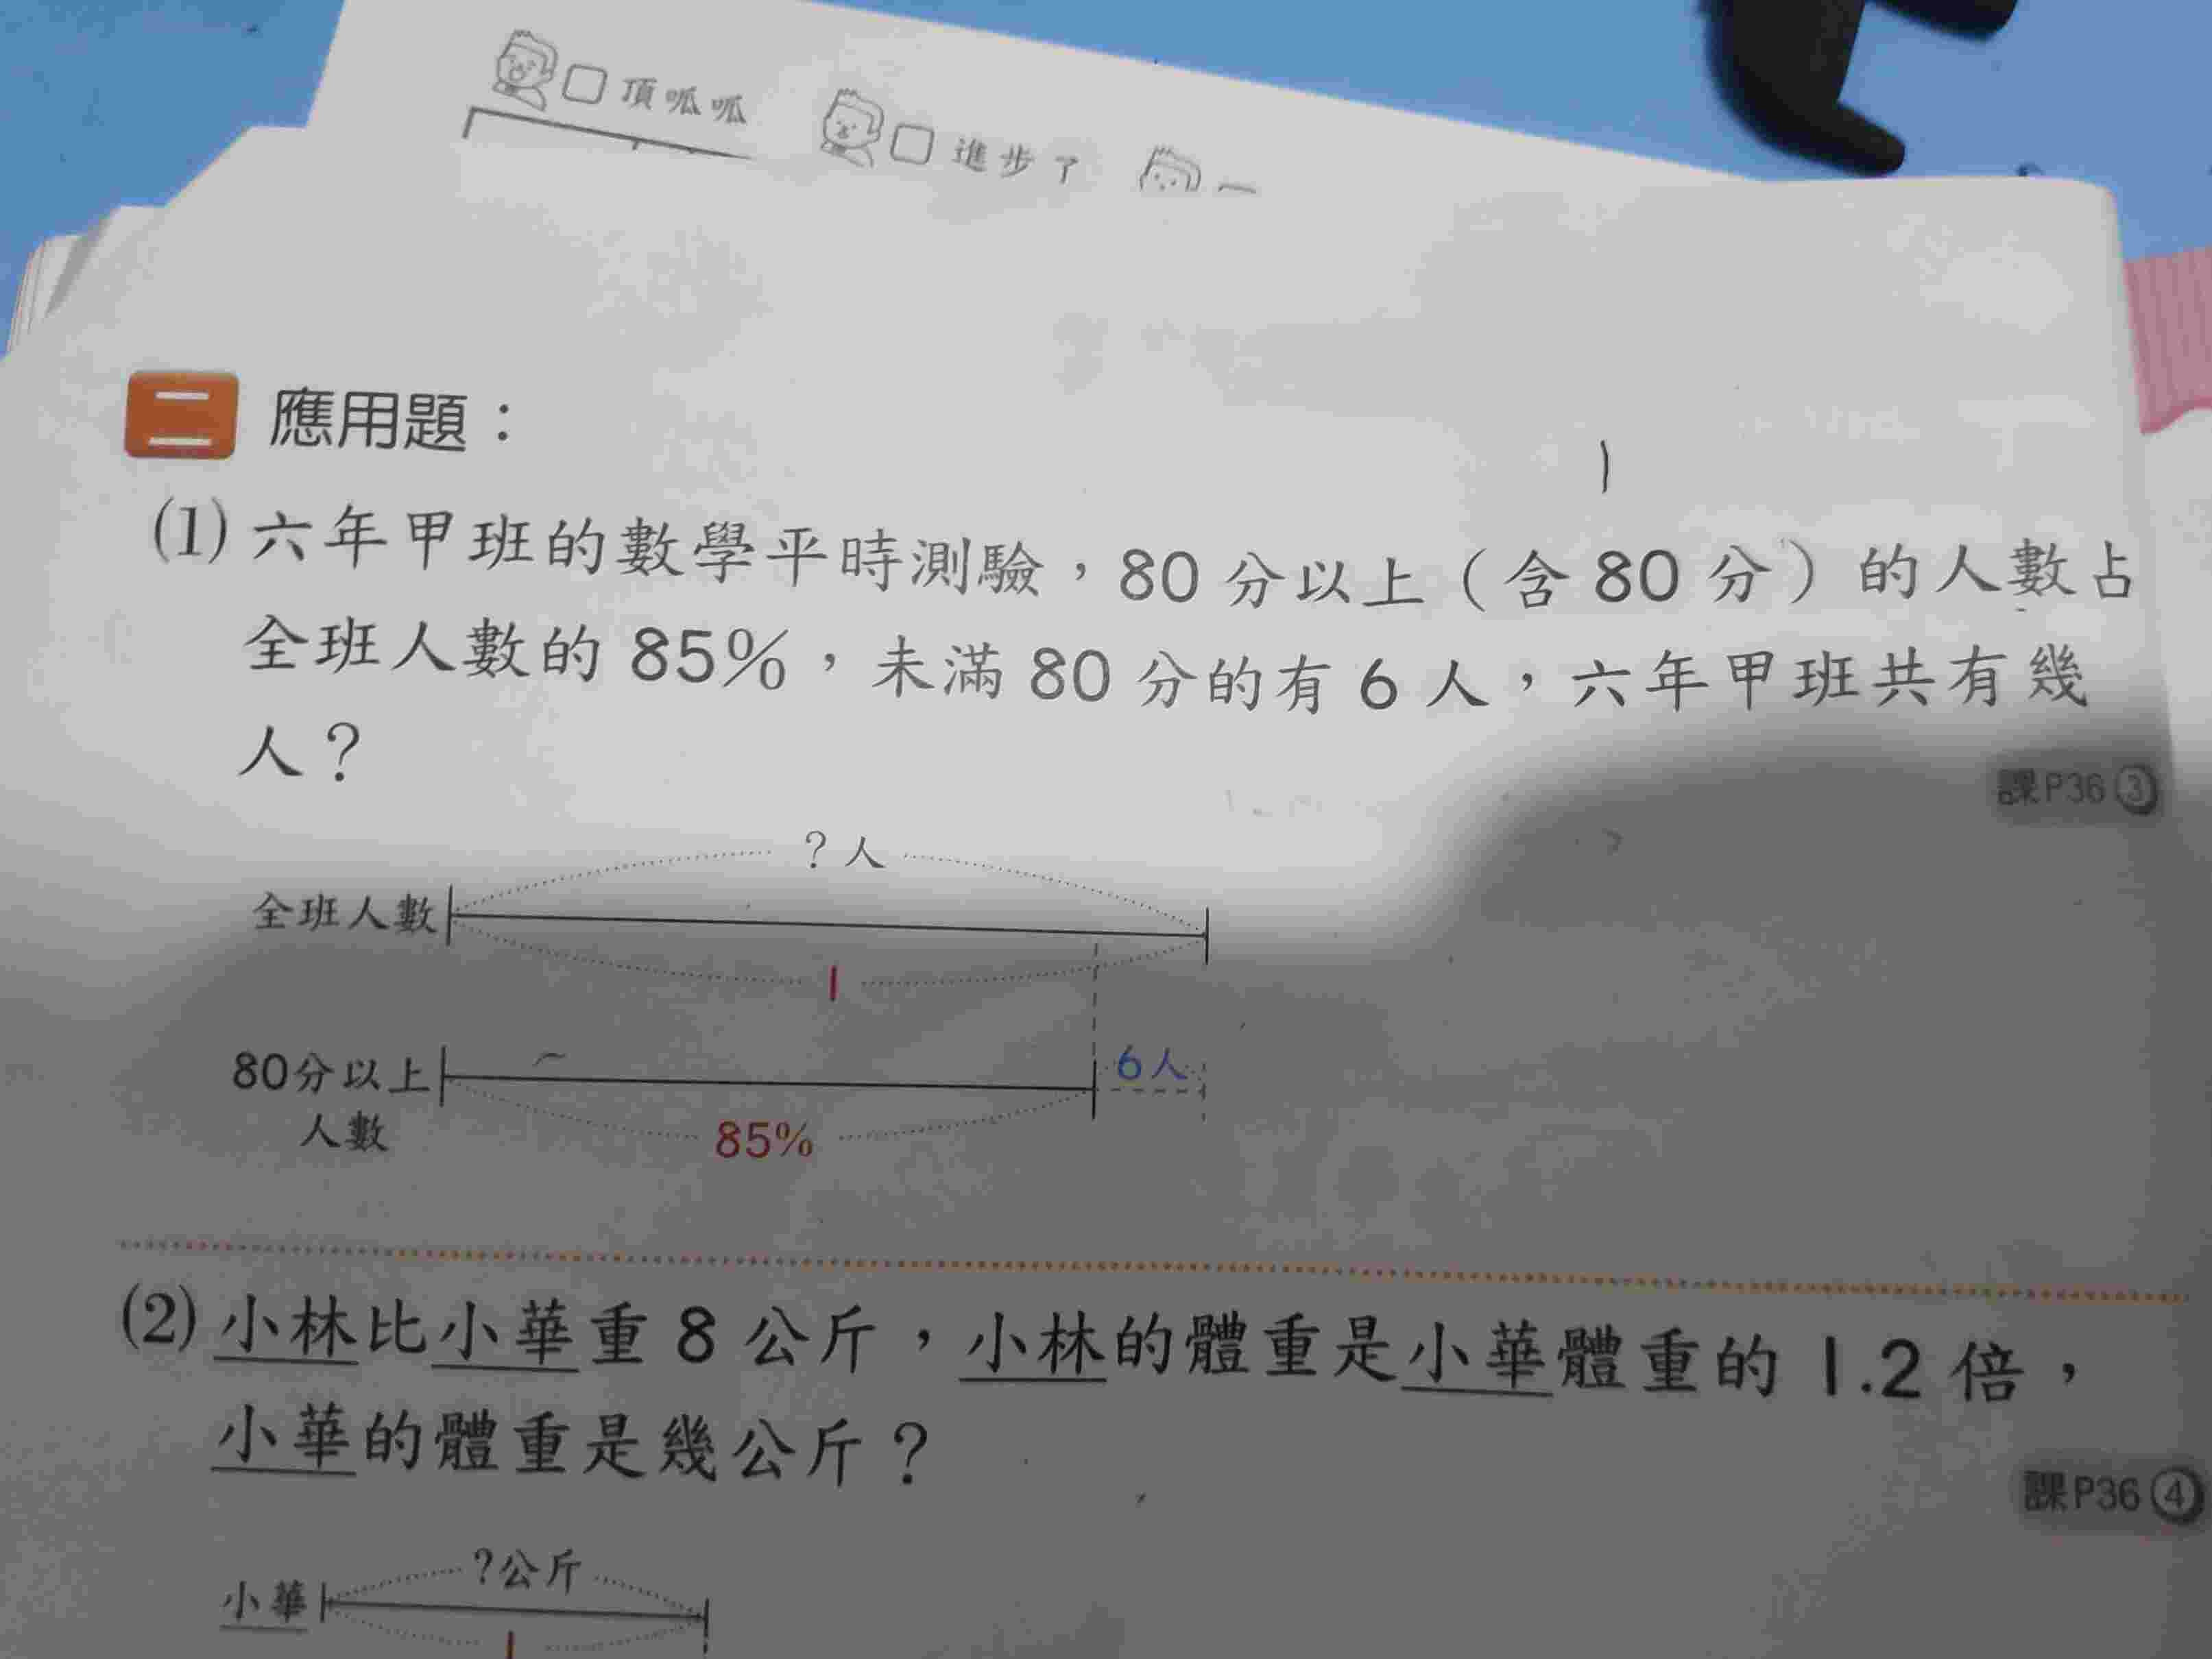 頂呱呱 進步了
二 應用題：
(1) 六年甲班的數學平時測驗，80 分以上（含 80 分）的人數占
全班人數的 85%，未滿 80 分的有 6 人，六年甲班共有幾
人？
課P36 ③
? 人
全班人數
1
80分以上
人數
6人
85%
(2) 小林比小華重 8 公斤，小林的體重是小華體重的 1.2 倍，
小華的體重是幾公斤？
課P36 ④
?公斤
小華
1